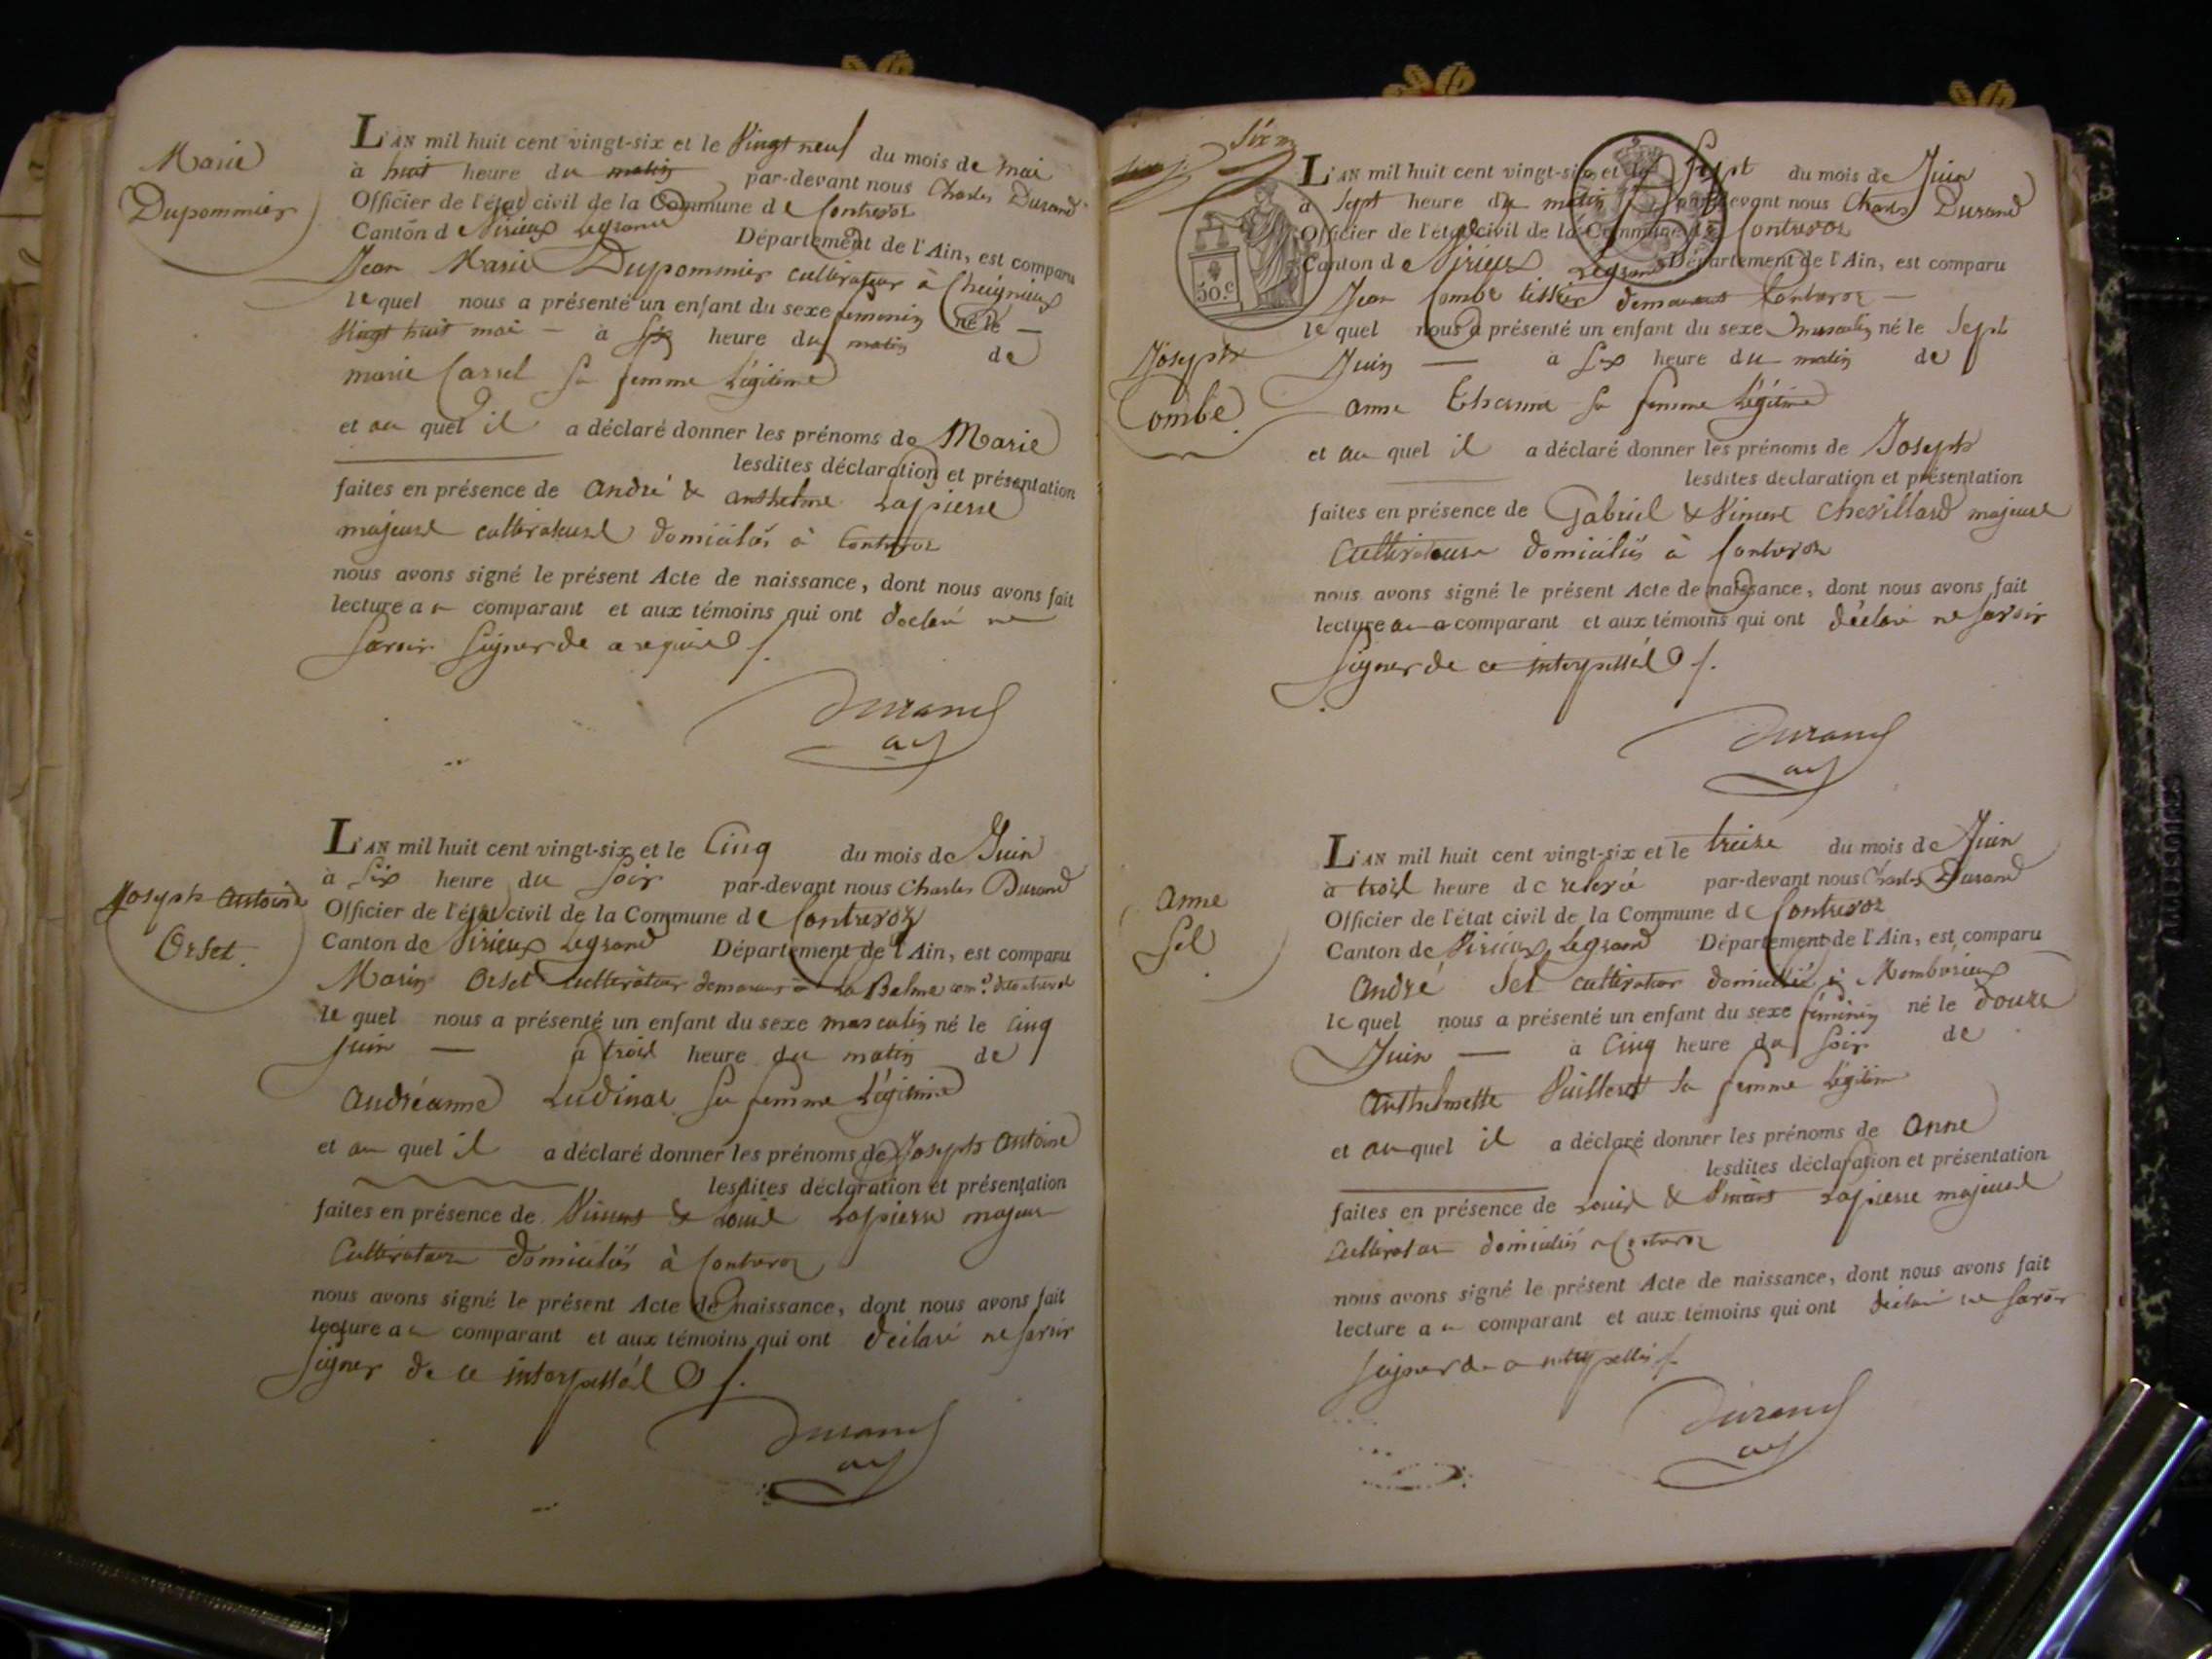 Marie
Dupommier
L'AN mil huit cent vingt-six et le Vingt neuf du mois de mai
à huit heure du matin par-devant nous Charles Durand
Officier de l'état civil de la Commune de Contrevoz
Canton de Virieux Legrand Département de l'Ain, est comparu
Jean Marie Dupommier cultivateur à Cheignieux
lequel nous a présenté un enfant du sexe feminin né le
Vingt huit mai à six heure du matin de
marie Carrel sa femme Légitime
et au quel il a déclaré donner les prénoms de Marie
lesdites déclaration et présentation
faites en présence de André & anthelme Lapierre
majeurs cultivateurs domiciliés à Contrevoz
nous avons signé le présent Acte de naissance, dont nous avons fait
lecture au comparant et aux témoins qui ont déclaré ne
savoir signer de ce requis
Durand
Joseph Antoine
Orset.
L'AN mil huit cent vingt-six et le Cinq du mois de Juin
à Six heure du Soir par-devant nous Charles Durand
Officier de l'état civil de la Commune de Contrevoz
Canton de Virieux Legrand Département de l'Ain, est comparu
Marin Orset cultivateur demeurant à La Balme
le quel nous a présenté un enfant du sexe masculin né le cinq
Juin à trois heure du matin de
Andréanne Ludinar sa femme Légitime
et au quel il a déclaré donner les prénoms de Joseph Antoine
lesdites déclaration et présentation
faites en présence de Vincent & Louis Lapierre majeurs
Cultivateurs domiciliés à Contrevoz
nous avons signé le présent Acte de naissance, dont nous avons fait
lecture au comparant et aux témoins qui ont déclaré ne savoir
signer de ce interpellés
Durand
50.c
Joseph
Combe.
L'AN mil huit cent vingt-six et le Sept du mois de Juin
à Sept heure du matin par-devant nous Charles Durand
Officier de l'état civil de la Commune de Contrevoz
Canton de Virieux Legrand Département de l'Ain, est comparu
Jean Combe tissier demeurant Contrevoz
le quel nous a présenté un enfant du sexe masculin né le Sept
Juin à Six heure du matin de
anne sa femme Légitime
et au quel il a déclaré donner les prénoms de Joseph
lesdites déclaration et présentation
faites en présence de Gabriel & Vincent Chevillard majeurs
Cultivateurs domiciliés à Contrevoz
nous avons signé le présent Acte de naissance, dont nous avons fait
lecture au comparant et aux témoins qui ont déclaré ne savoir
signer de ce interpellés
Durand
Anne
Sel
L'AN mil huit cent vingt-six et le treize du mois de Juin
à trois heure de relevé par-devant nous Charles Durand
Officier de l'état civil de la Commune de Contrevoz
Canton de Virieux Legrand Département de l'Ain, est comparu
André Sel cultivateur domicilié à Montbrieux
le quel nous a présenté un enfant du sexe féminin né le douze
Juin à Cinq heure du Soir de
Anthelmette Vuillerot sa femme légitime
et au quel il a déclaré donner les prénoms de Anne
lesdites déclaration et présentation
faites en présence de Louis & Vincent Lapierre majeurs
Cultivateurs domiciliés à Contrevoz
nous avons signé le présent Acte de naissance, dont nous avons fait
lecture au comparant et aux témoins qui ont déclaré ne savoir
signer de ce interpellés
Durand